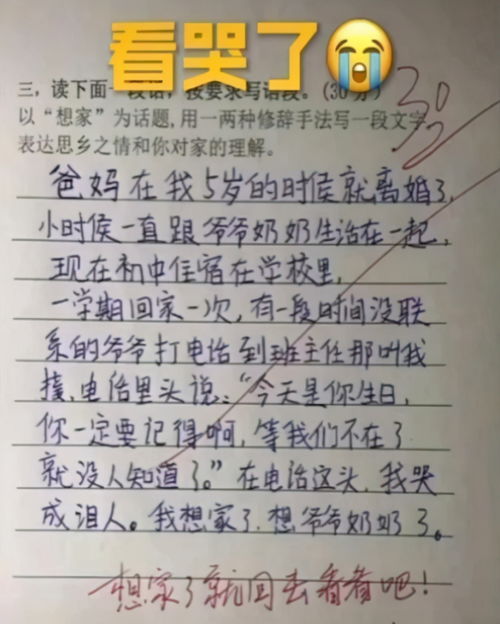 看哭了😭
三，读下面一段话，按要求写语段。（30分）
30
以“想家”为话题,用一两种修辞手法写一段文字,
表达思乡之情和你对家的理解。
爸妈在我5岁的时候就离婚了,
小时侯一直跟爷爷奶奶生活在一起,
现在初中住宿在学校里,
一学期回家一次,有一段时间没联
系的爷爷打电话到班主任那叫我
接,电话里头说:“今天是你生日,
你一定要记得啊,等我们不在了
就没人知道了。”在电话这头,我哭
成泪人。我想家了,想爷爷奶奶了。
想家了就回去看看吧!